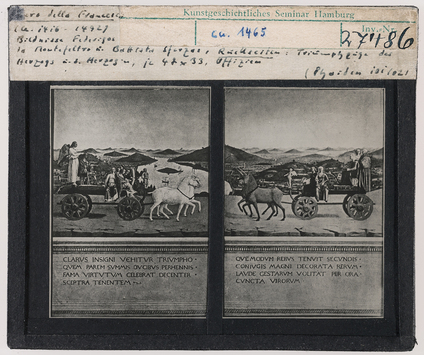 Kunstgeschichtliches Seminar Hamburg
Piero della Francesca
(ca. 1416 - 1492)
Inv.-Nr.
ca. 1465
27486
Bildnisse Federigos
da Montefeltro u. Battista Sforza, Rückseiten: Triumphzüge des
Herzogs u. d. Herzogin, je 47 x 33, Uffizien
(Phaidon
CLARVS INSIGNI VEHITVR TRIVMPHO ·
QVEM PAREM SVMMIS DVCIBVS PERHENNIS ·
FAMA VIRTVTVM CELEBRAT DECENTER ·
SCEPTRA TENENTEM
QVE MODVM REBVS TENVIT SECVNDIS ·
CONIVGIS MAGNI DECORATA RERVM ·
LAVDE GESTARVM VOLITAT PER ORA ·
CVNCTA VIRORVM